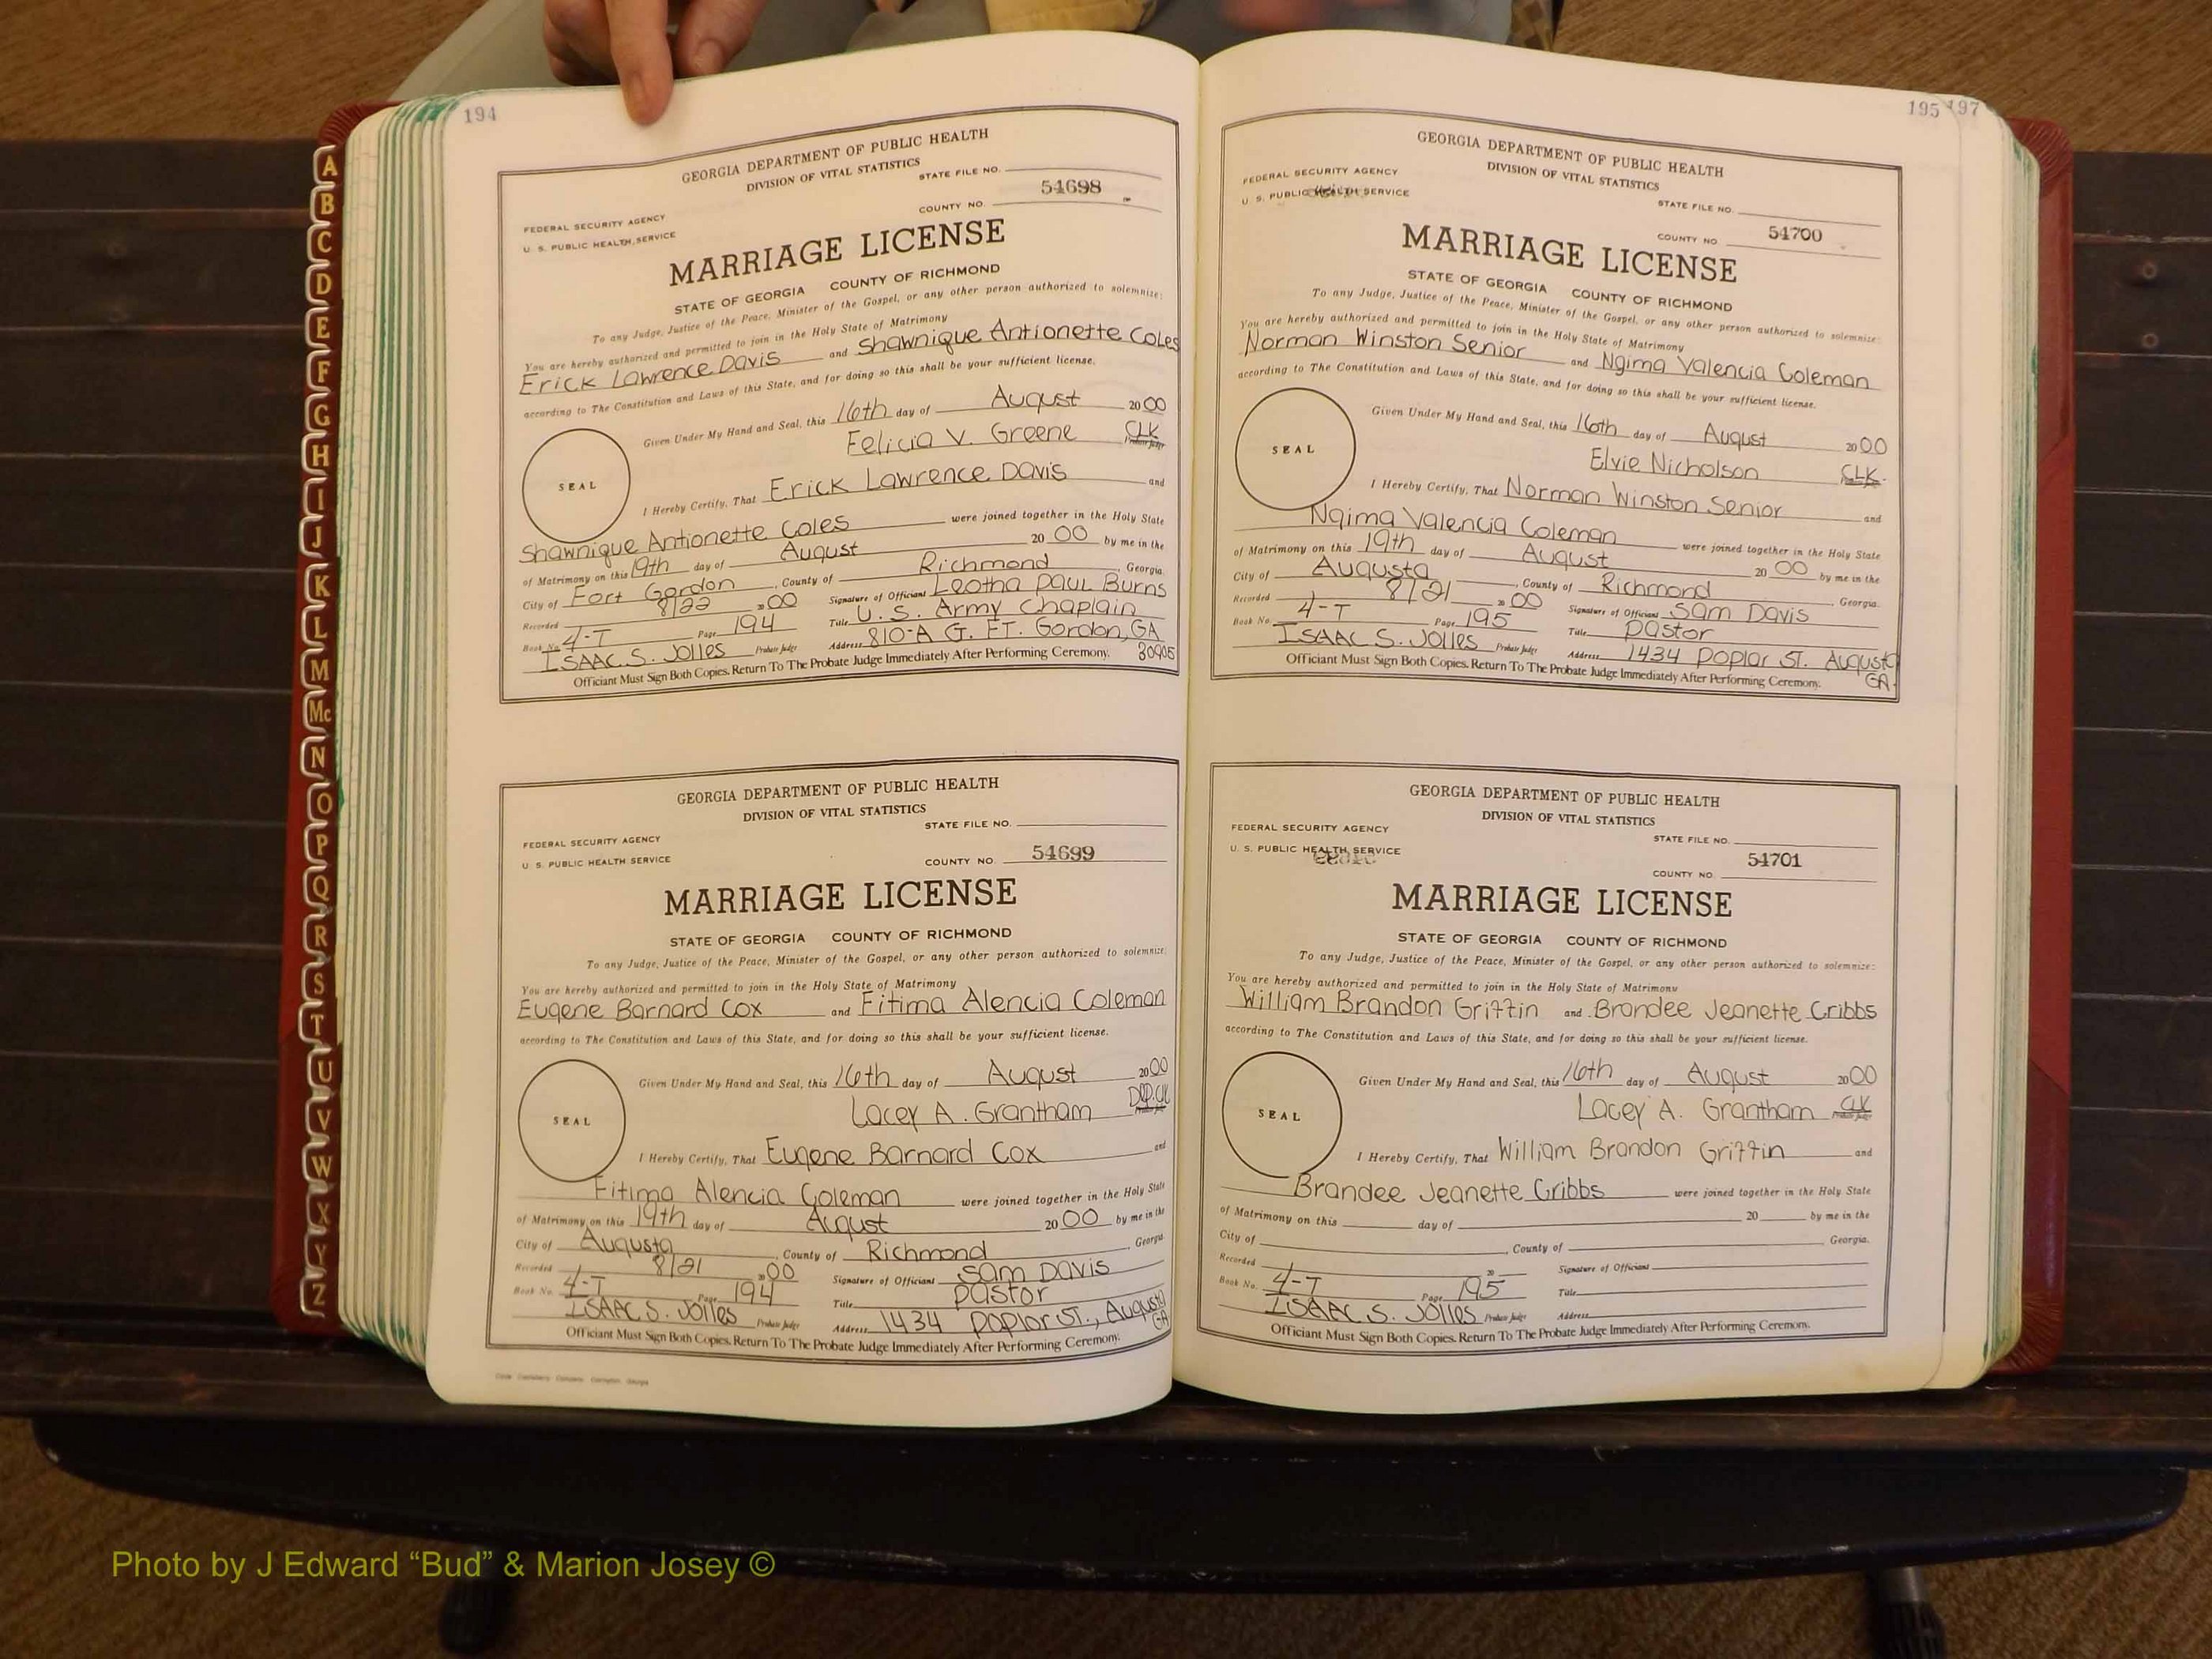 194
GEORGIA DEPARTMENT OF PUBLIC HEALTH
DIVISION OF VITAL STATISTICS
STATE FILE NO.
54698
COUNTY NO.
FEDERAL SECURITY AGENCY
U. S. PUBLIC HEALTH SERVICE
MARRIAGE LICENSE
STATE OF GEORGIA COUNTY OF RICHMOND
To any Judge, Justice of the Peace, Minister of the Gospel, or any other person authorized to solemnize:
You are hereby authorized and permitted to join in the Holy State of Matrimony
Erick Lawrence Davis and Shawnique Antionette Coles
according to The Constitution and Laws of this State, and for doing so this shall be your sufficient license.
Given Under My Hand and Seal, this 16th day of August 2000
Felicia V. Greene CLK
Probate Judge
SEAL
I Hereby Certify, That Erick Lawrence Davis and
Shawnique Antionette Coles were joined together in the Holy State
of Matrimony on this 19th day of August 20 00 by me in the
City of Fort Gordon, County of Richmond, Georgia.
Recorded 8/22 2000 Signature of Officiant Leotha Paul Burns
Book No. 4-T Page 194 Title U. S. Army Chaplain
ISAAC S. Jolles Probate Judge Address 810-A G. FT. Gordon, GA 30905
Officiant Must Sign Both Copies. Return To The Probate Judge Immediately After Performing Ceremony.
GEORGIA DEPARTMENT OF PUBLIC HEALTH
DIVISION OF VITAL STATISTICS
STATE FILE NO.
FEDERAL SECURITY AGENCY
U. S. PUBLIC HEALTH SERVICE
COUNTY NO. 54699
MARRIAGE LICENSE
STATE OF GEORGIA COUNTY OF RICHMOND
To any Judge, Justice of the Peace, Minister of the Gospel, or any other person authorized to solemnize:
You are hereby authorized and permitted to join in the Holy State of Matrimony
Eugene Barnard Cox and Fitima Alencia Coleman
according to The Constitution and Laws of this State, and for doing so this shall be your sufficient license.
Given Under My Hand and Seal, this 16th day of August 2000
Lacey A. Grantham Dep. Clk
SEAL
I Hereby Certify, That Eugene Barnard Cox and
Fitima Alencia Coleman were joined together in the Holy State
of Matrimony on this 19th day of August 20 00 by me in the
City of Augusta, County of Richmond, Georgia.
Recorded 8/21 2000 Signature of Officiant Sam Davis
Book No. 4-T Page 194 Title Pastor
ISAAC S. Jolles Probate Judge Address 1434 Poplar St., Augusta GA
Officiant Must Sign Both Copies. Return To The Probate Judge Immediately After Performing Ceremony.
195 197
GEORGIA DEPARTMENT OF PUBLIC HEALTH
DIVISION OF VITAL STATISTICS
FEDERAL SECURITY AGENCY
U. S. PUBLIC HEALTH SERVICE
STATE FILE NO.
COUNTY NO. 54700
MARRIAGE LICENSE
STATE OF GEORGIA COUNTY OF RICHMOND
To any Judge, Justice of the Peace, Minister of the Gospel, or any other person authorized to solemnize:
You are hereby authorized and permitted to join in the Holy State of Matrimony
Norman Winston Senior and Ngima Valencia Coleman
according to The Constitution and Laws of this State, and for doing so this shall be your sufficient license.
Given Under My Hand and Seal, this 16th day of August 2000
Elvie Nicholson CLK
SEAL
I Hereby Certify, That Norman Winston Senior and
Ngima Valencia Coleman were joined together in the Holy State
of Matrimony on this 19th day of August 20 00 by me in the
City of Augusta, County of Richmond, Georgia.
Recorded 8/21 2000 Signature of Officiant Sam Davis
Book No. 4-T Page 195 Title Pastor
ISAAC S. Jolles Probate Judge Address 1434 Poplar St. Augusta GA.
Officiant Must Sign Both Copies. Return To The Probate Judge Immediately After Performing Ceremony.
GEORGIA DEPARTMENT OF PUBLIC HEALTH
DIVISION OF VITAL STATISTICS
FEDERAL SECURITY AGENCY
U. S. PUBLIC HEALTH SERVICE
STATE FILE NO.
54701
COUNTY NO.
MARRIAGE LICENSE
STATE OF GEORGIA COUNTY OF RICHMOND
To any Judge, Justice of the Peace, Minister of the Gospel, or any other person authorized to solemnize:
You are hereby authorized and permitted to join in the Holy State of Matrimony
William Brandon Griffin and Brandee Jeanette Cribbs
according to The Constitution and Laws of this State, and for doing so this shall be your sufficient license.
Given Under My Hand and Seal, this 16th day of August 2000
Lacey A. Grantham CLK
Probate Judge
SEAL
I Hereby Certify, That William Brandon Griffin and
Brandee Jeanette Cribbs were joined together in the Holy State
of Matrimony on this day of 20 by me in the
City of , County of Georgia.
Recorded 20 Signature of Officiant
Book No. 4-T Page 195 Title
ISAAC S. Jolles Probate Judge Address
Officiant Must Sign Both Copies. Return To The Probate Judge Immediately After Performing Ceremony.
A
B
C
D
E
F
G
H
I
J
K
L
M
Mc
N
O
P
Q
R
S
T
U
V
W
X
Y
Z
Photo by J Edward “Bud” & Marion Josey ©